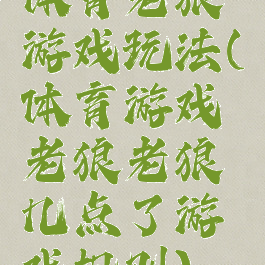 体育老狼
游戏玩法(
体育游戏
老狼老狼
几点了游
戏规则)